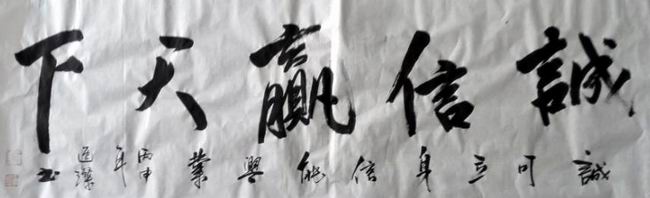 誠信贏天下
誠可立身信能興業 丙申年 道潔书